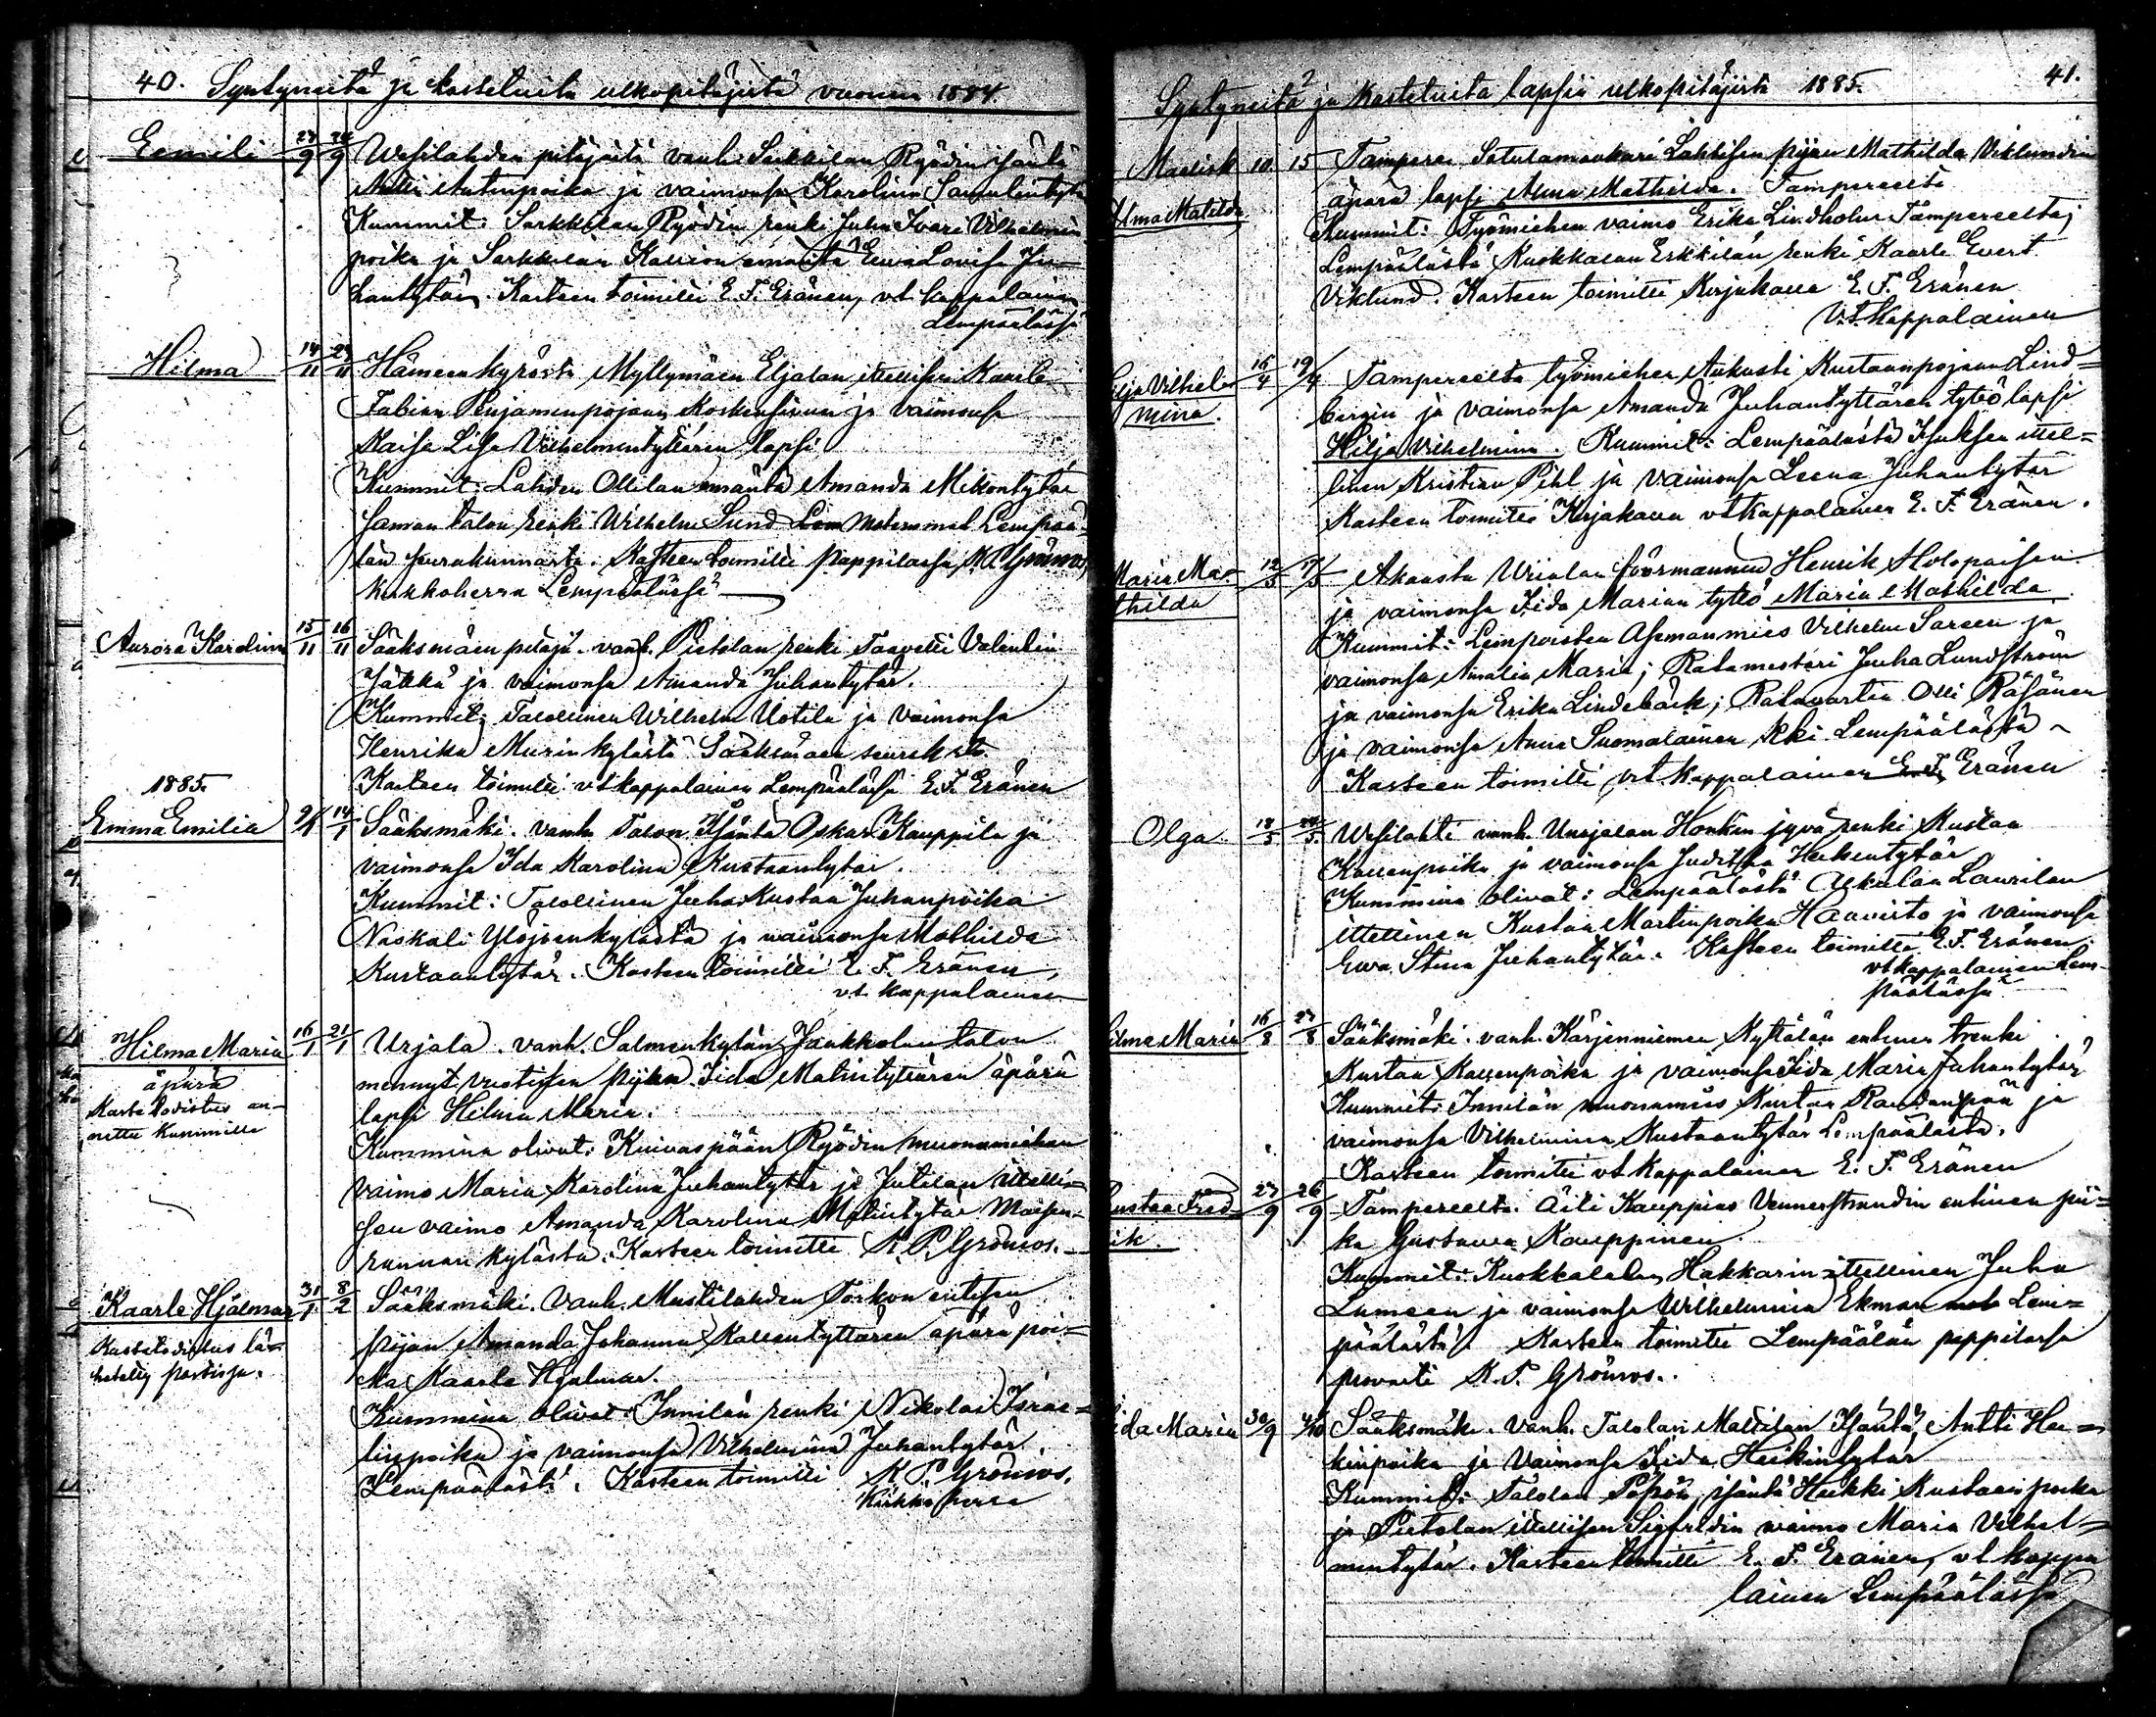 40. Syntyneitä ja kastetuita ulkopitäjistä vuonna 1884.
Eemili 23/9 24/9 Wesilahden pitäjästä vanh. Sarkkilan Ryödin isäntä
Antinpoika ja vaimonsa Karolina
Kummit: Sarkkilan Ryödin renki Juha Iivari Vilhelmin
poika ja Sarkkilan emäntä Eeva Lovisa Ju-
hantytär. Kasteen toimitti E. F. Eränen, vt. kappalainen
Lempäälässä
Hilma 14/11 23/11 Hämeenkyröstä Myllymäen Eljalan itsellisen Kaarle
Fabian Penjamenpojan Koskensivun ja vaimonsa
Maija Lisa Vilhelmintyttären lapsi
Kummit: Lahden Ollilan emäntä Amanda Mikontytär
saman talon renki Wilhelm Lund Lem molemmat Lempää-
län seurakunnasta. Kasteen toimitti pappilassa K. P. Grönroos
Kirkkoherra Lempäälässä
Aurora Karolina 15/11 16/11 Sääksmäen pitäjä. vanh. Pietolan renki Taavetti Valentin
ja vaimonsa Amanda Juhantytär.
Kummit: Talollinen Wilhelm Uotila ja vaimonsa
Henrika kylästä Sääksmäen seurak:sta
Kasteen toimitti vt kappalainen Lempäälässä E. F. Eränen
1885.
Emma Emilia 9/1 14/1 Sääksmäki. vanh. Talon Isäntä Oskar Kauppila ja
vaimonsa Ida Karolina Kustaantytär.
Kummit: Talollinen Juha Kustaa Juhanpoika
Naskali kylästä ja vaimonsa Mathilda
Kustaantytär. Kasteen toimitti E. F. Eränen,
vt. kappalainen
Hilma Maria 16/1 21/1 Urjala. vanh. Salmenkylän Jaakkolan talon
äpärä mennyt vuotisen piijan Iida Matintyttären äpärä
Kaste todistus an- lapsi Hilma Maria.
nettu kummille Kummina olivat: Kuivaspään Ryödin muonamiehen
vaimo Maria Karolina Juhantytär ja Jutilan itselli-
sen vaimo Amanda Karolina Matintytär Moisen-
rannan kylästä. Kasteen toimitti K. P. Grönroos.
Kaarle Hjalmar 31/1 8/2 Sääksmäki. Vanh. Mustilahden Torkon entisen
Kastetodistus lä- piijan Amanda Johanna Kallentyttären äpärä poi-
hetetty postissa. ka Kaarle Hjalmar.
Kummina olivat: Innilän renki Nikolai Israe-
linpoika ja vaimonsa Vilhelmina Juhantytär.
Lempäälästä. Kasteen toimitti K. P. Grönroos.
Kirkkoherra
Syntyneitä ja kastetuita lapsia ulkopitäjistä 1885. 41.
Maalisk 10 15 Tampere. Satulamaakari Lahtisen piijan Mathilda Viklundin
Alma Matilda äpärä lapsi Alma Mathilda. Tampereelta
Kummit: Työmiehen vaimo Erika Lindholm Tampereelta;
Lempäälästä Kuokkalan Erkkilän renki Kaarle Evert
Viklund. Kasteen toimitti Kirjakaessa E. F. Eränen
V. t. kappalainen
Hilja Vilhel- 16/4 19/4 Tampereelta työmiehen Aukusti Kustaanpojan Lind-
mina. bergin ja vaimonsa Amanda Juhantyttären tyttö lapsi
Hilja Vilhelmina. Kummit: Lempäälästä itsel-
linen Kristian Pihl ja vaimonsa Leena Juhantytär
Kasteen toimitti vt kappalainen E. F. Eränen.
Maria Ma- 12/5 17/5 Akaasta förmannin Henrik Holopaisen
thilda ja vaimonsa Iida Marian tyttö Maria Mathilda
Kummit: Lempoisten Asemamies Vilhelm Saren ja
vaimonsa Amalia Maria; Ratamestari Juha Lundström
ja vaimonsa Erika Lindebäck; Ratavartia Olli Räsänen
ja vaimonsa Anna Suomalainen kki Lempäälästä
Kasteen toimitti vt. kappalainen E. F. Eränen
Olga 18/5 24/5 Wesilahti vanh. Honkin jyvä renki Kustaa
Kallenpoika ja vaimonsa Juditha Heikintytär
Kummina olivat: Lempäälästä Alkulan Laurilan
itsellinen Kustaa Martinpoika Haavisto ja vaimonsa
Eeva Stina Juhantytär. Kasteen toimitti E. F. Eränen
vt kappalainen Lem-
päälässä
Hilma Maria 16/8 23/8 Sääksmäki. vanh. Kärjenniemen Kyttälän entinen renki
Kustaa Kallenpoika ja vaimonsa Iida Maria Juhantytär
Kummit: Innilän muonamies Kustaa Raudanpää ja
vaimonsa Vilhelmina Kustaantytär Lempäälästä.
Kasteen toimitti vt. kappalainen E. F. Eränen
Kustaa Fred- 23/9 26/9 Tampereelta. Äiti Kauppias Vennerstrandin entinen pii-
rik. ka Gustava Kauppinen.
Kummit: Kuokkalan Hakkarin itsellinen Juha
Lumeen ja vaimonsa Wilhelmina Ekman Lem-
päälästä. Kasteen toimitti Lempäälän pappilassa
provasti K. P. Grönroos.
Iida Maria 30/9 4/10 Sääksmäki. Vanh. Talolan Mattilan Isäntä Antti Hei-
kinpoika ja Vaimonsa Iida Heikintytär
Kummit: Talolan isäntä Heikki Kustaanpoika
ja Pietolan itsellisen Sigfridin vaimo Maria Vilhel-
mintytär. Kasteen toimitti E. F. Eränen, vt kappa
lainen Lempäälässä